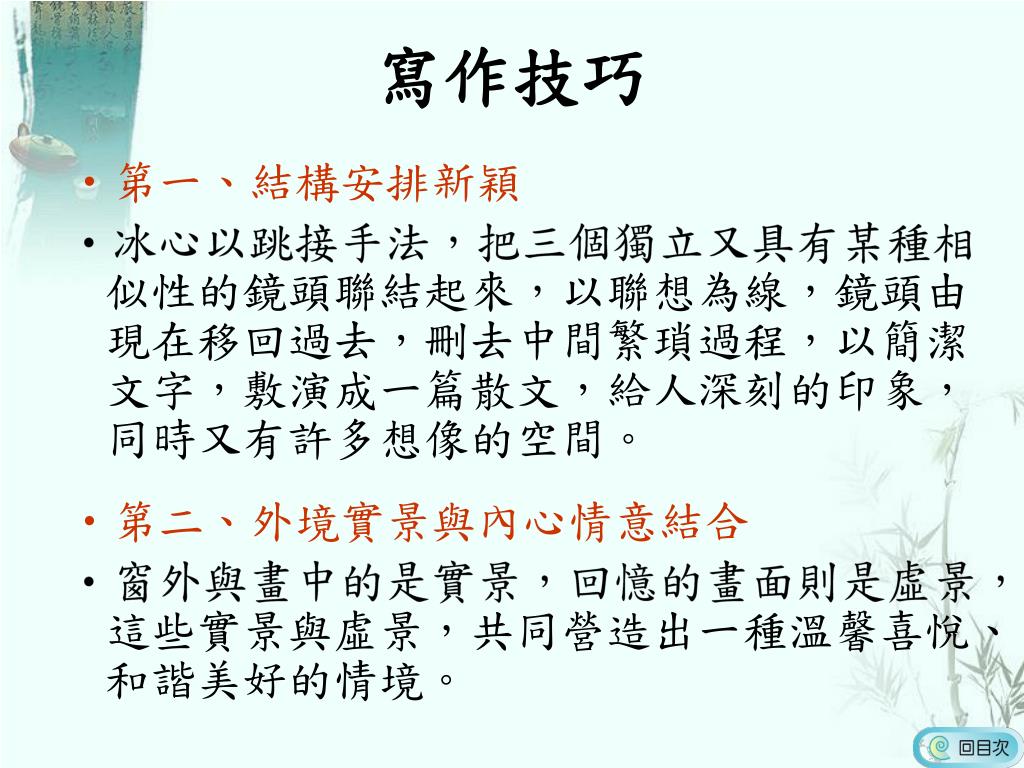 寫作技巧
• 第一、結構安排新穎
• 冰心以跳接手法，把三個獨立又具有某種相
似性的鏡頭聯結起來，以聯想為線，鏡頭由
現在移回過去，刪去中間繁瑣過程，以簡潔
文字，敷演成一篇散文，給人深刻的印象，
同時又有許多想像的空間。
• 第二、外境實景與內心情意結合
• 窗外與畫中的是實景，回憶的畫面則是虛景，
這些實景與虛景，共同營造出一種溫馨喜悅、
和諧美好的情境。
回目次